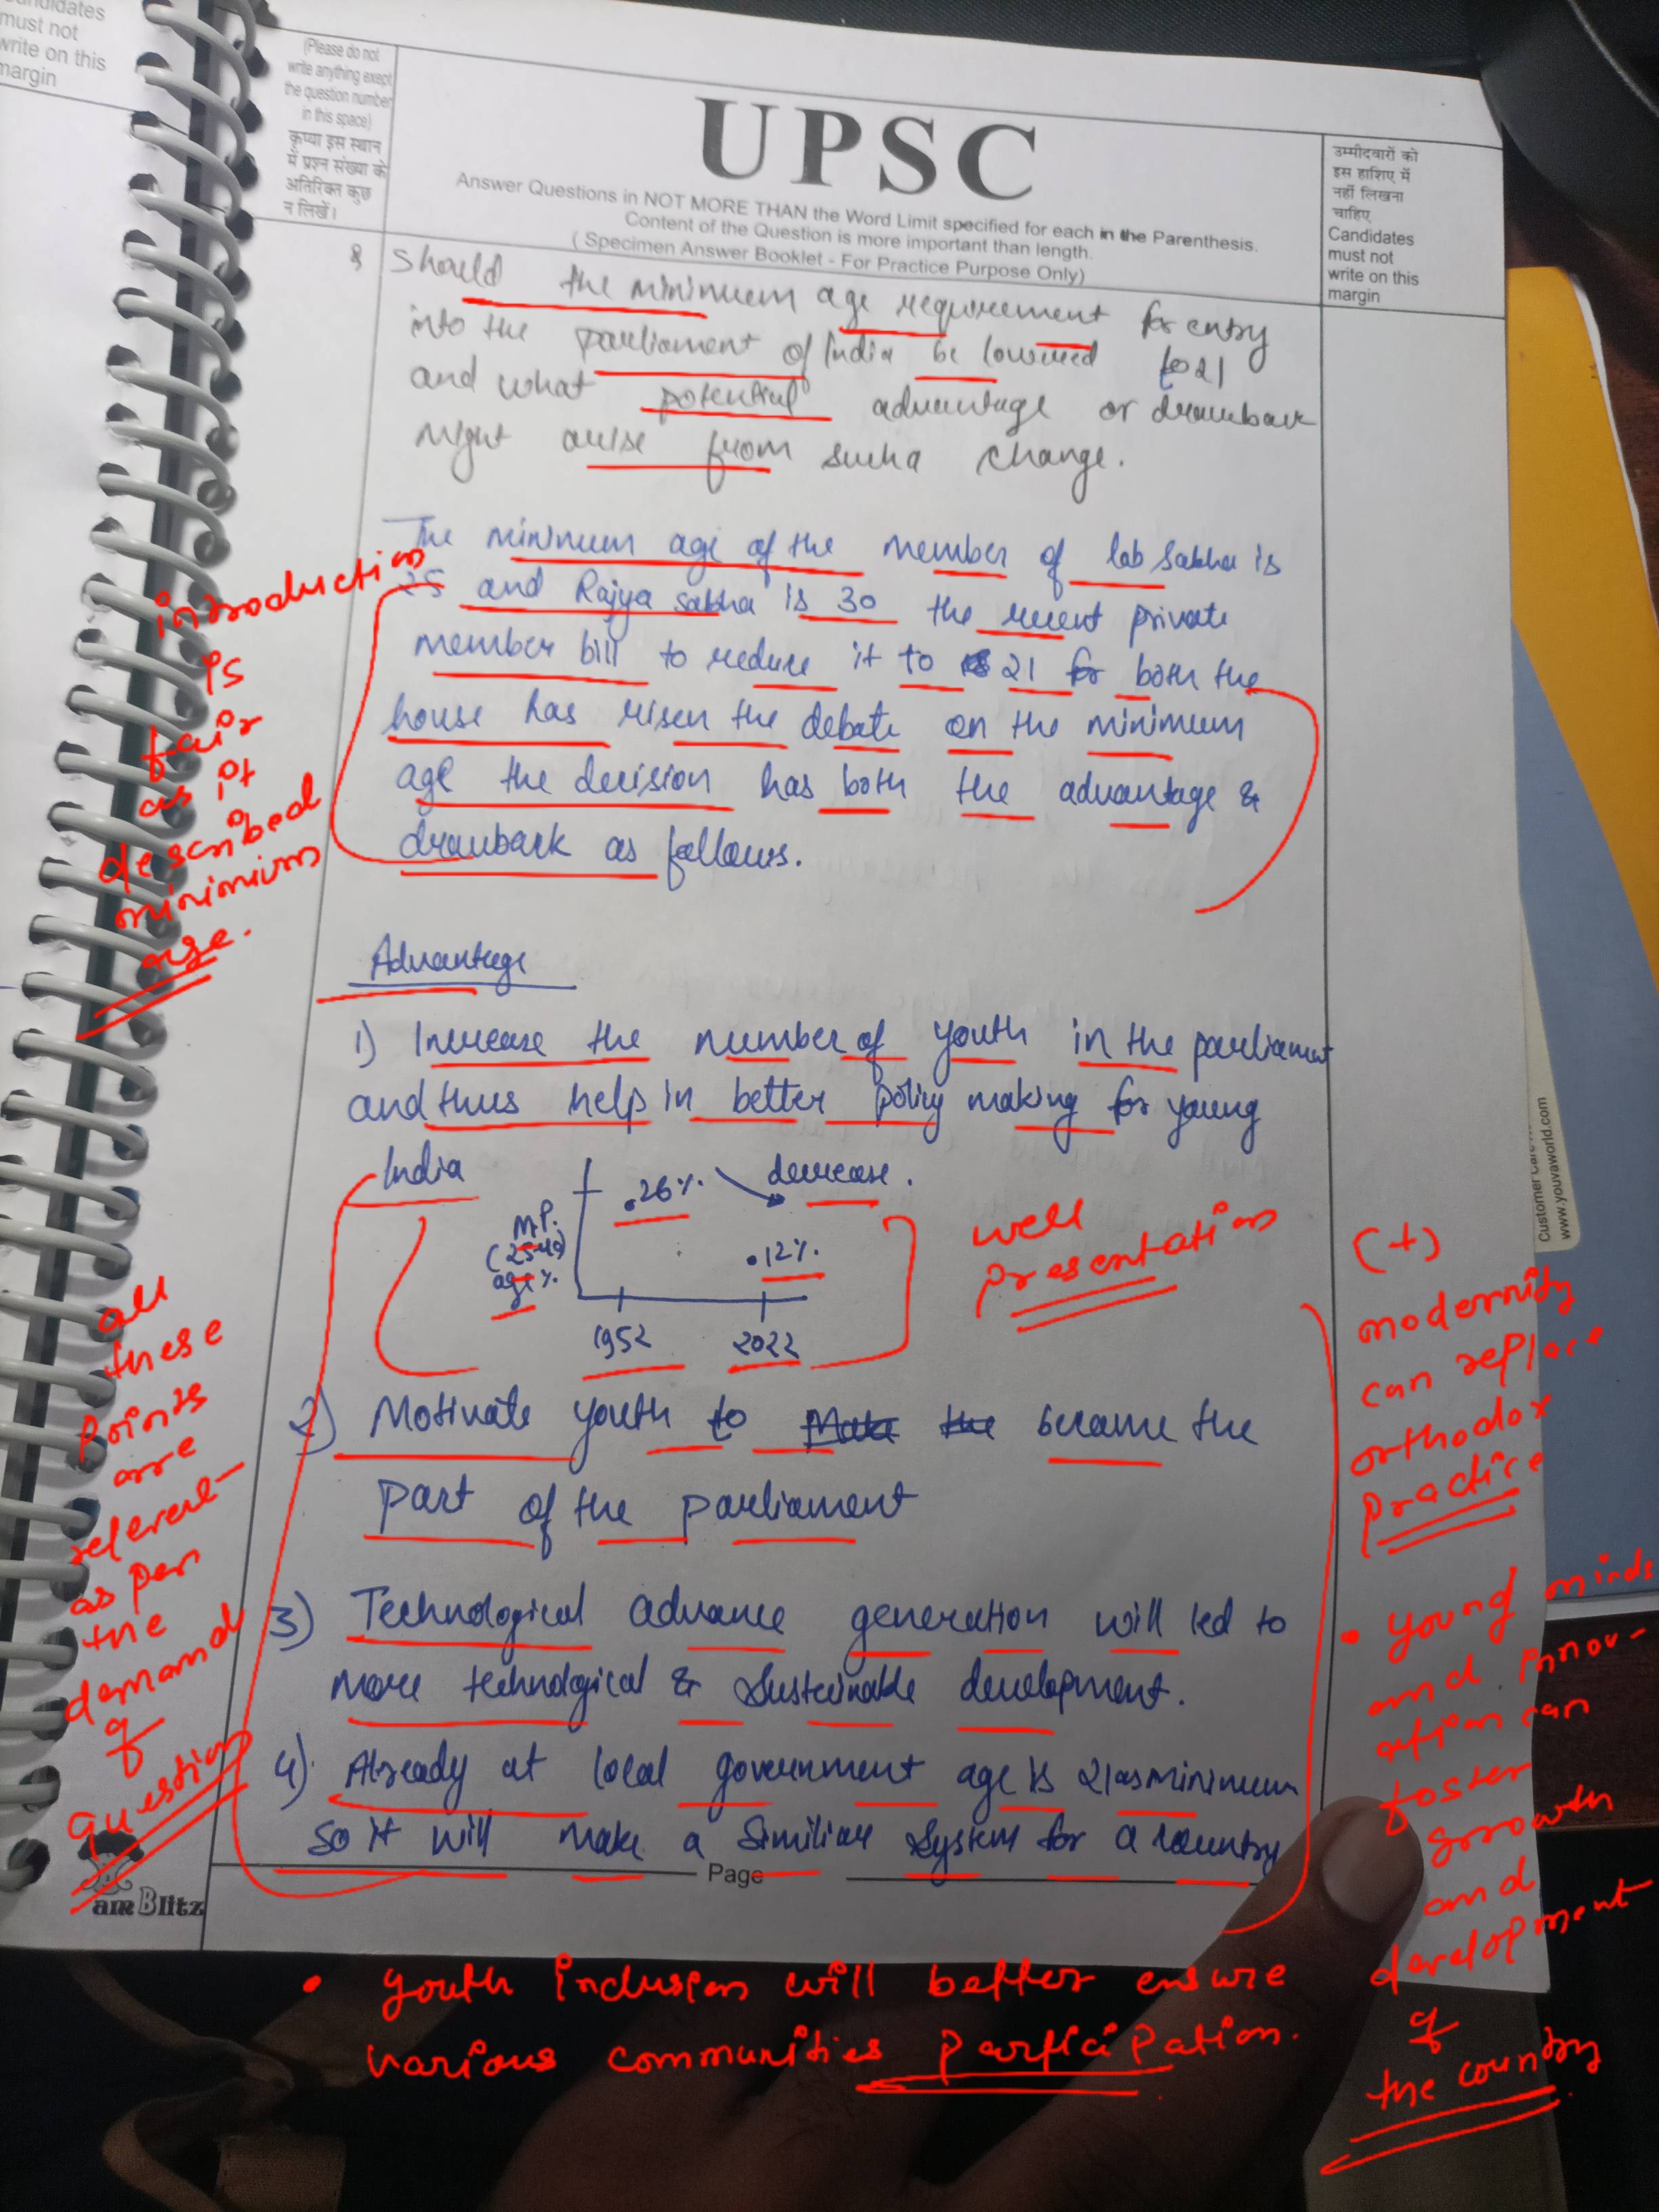 candidates
must not
write on this
margin
(Please do not
write anything exept
the question number
in this space)
कृप्या इस स्थान
में प्रश्न संख्या के
अतिरिक्त कुछ
न लिखें।
UPSC
Answer Questions in NOT MORE THAN the Word Limit specified for each in the Parenthesis.
Content of the Question is more important than length.
( Specimen Answer Booklet - For Practice Purpose Only)
उम्मीदवारों को
इस हाशिए में
नहीं लिखना
चाहिए
Candidates
must not
write on this
margin
8 Should the minimum age requirement for entry
into the parliament of India be lowered to 21
and what potential advantage or drawback
might arise from such a change.
The minimum age of the member of lok Sabha is
25 and Rajya sabha is 30 the recent private
member bill to reduce it to 21 for both the
house has risen the debate on the minimum
age the decision has both the advantage &
drawback as follows.
introduction
is
fair
as it
described
minimium
age.
Advantage
1) Increase the number of youth in the parliament
and thus help in better policy making for young
India
.26%. decrease.
M.P.
(25-40)
age %.
.12%.
1952 2022
well
presentation
2) Motivate youth to became the
part of the parliament
3) Technological advance generation will led to
more technological & Sustainable development.
4). Already at local government age is 21 as minimum
so it will make a similiar system for a country
all
these
points
are
relevent
as per
the
demand
of
question
(+)
modernity
can replace
orthodox
practice
• young minds
and innov-
ation can
foster
growth
and
development
of
the country
Page
am Blitz
• youth inclusion will better ensure
various communities participation.
Customer Care
www.youvaworld.com